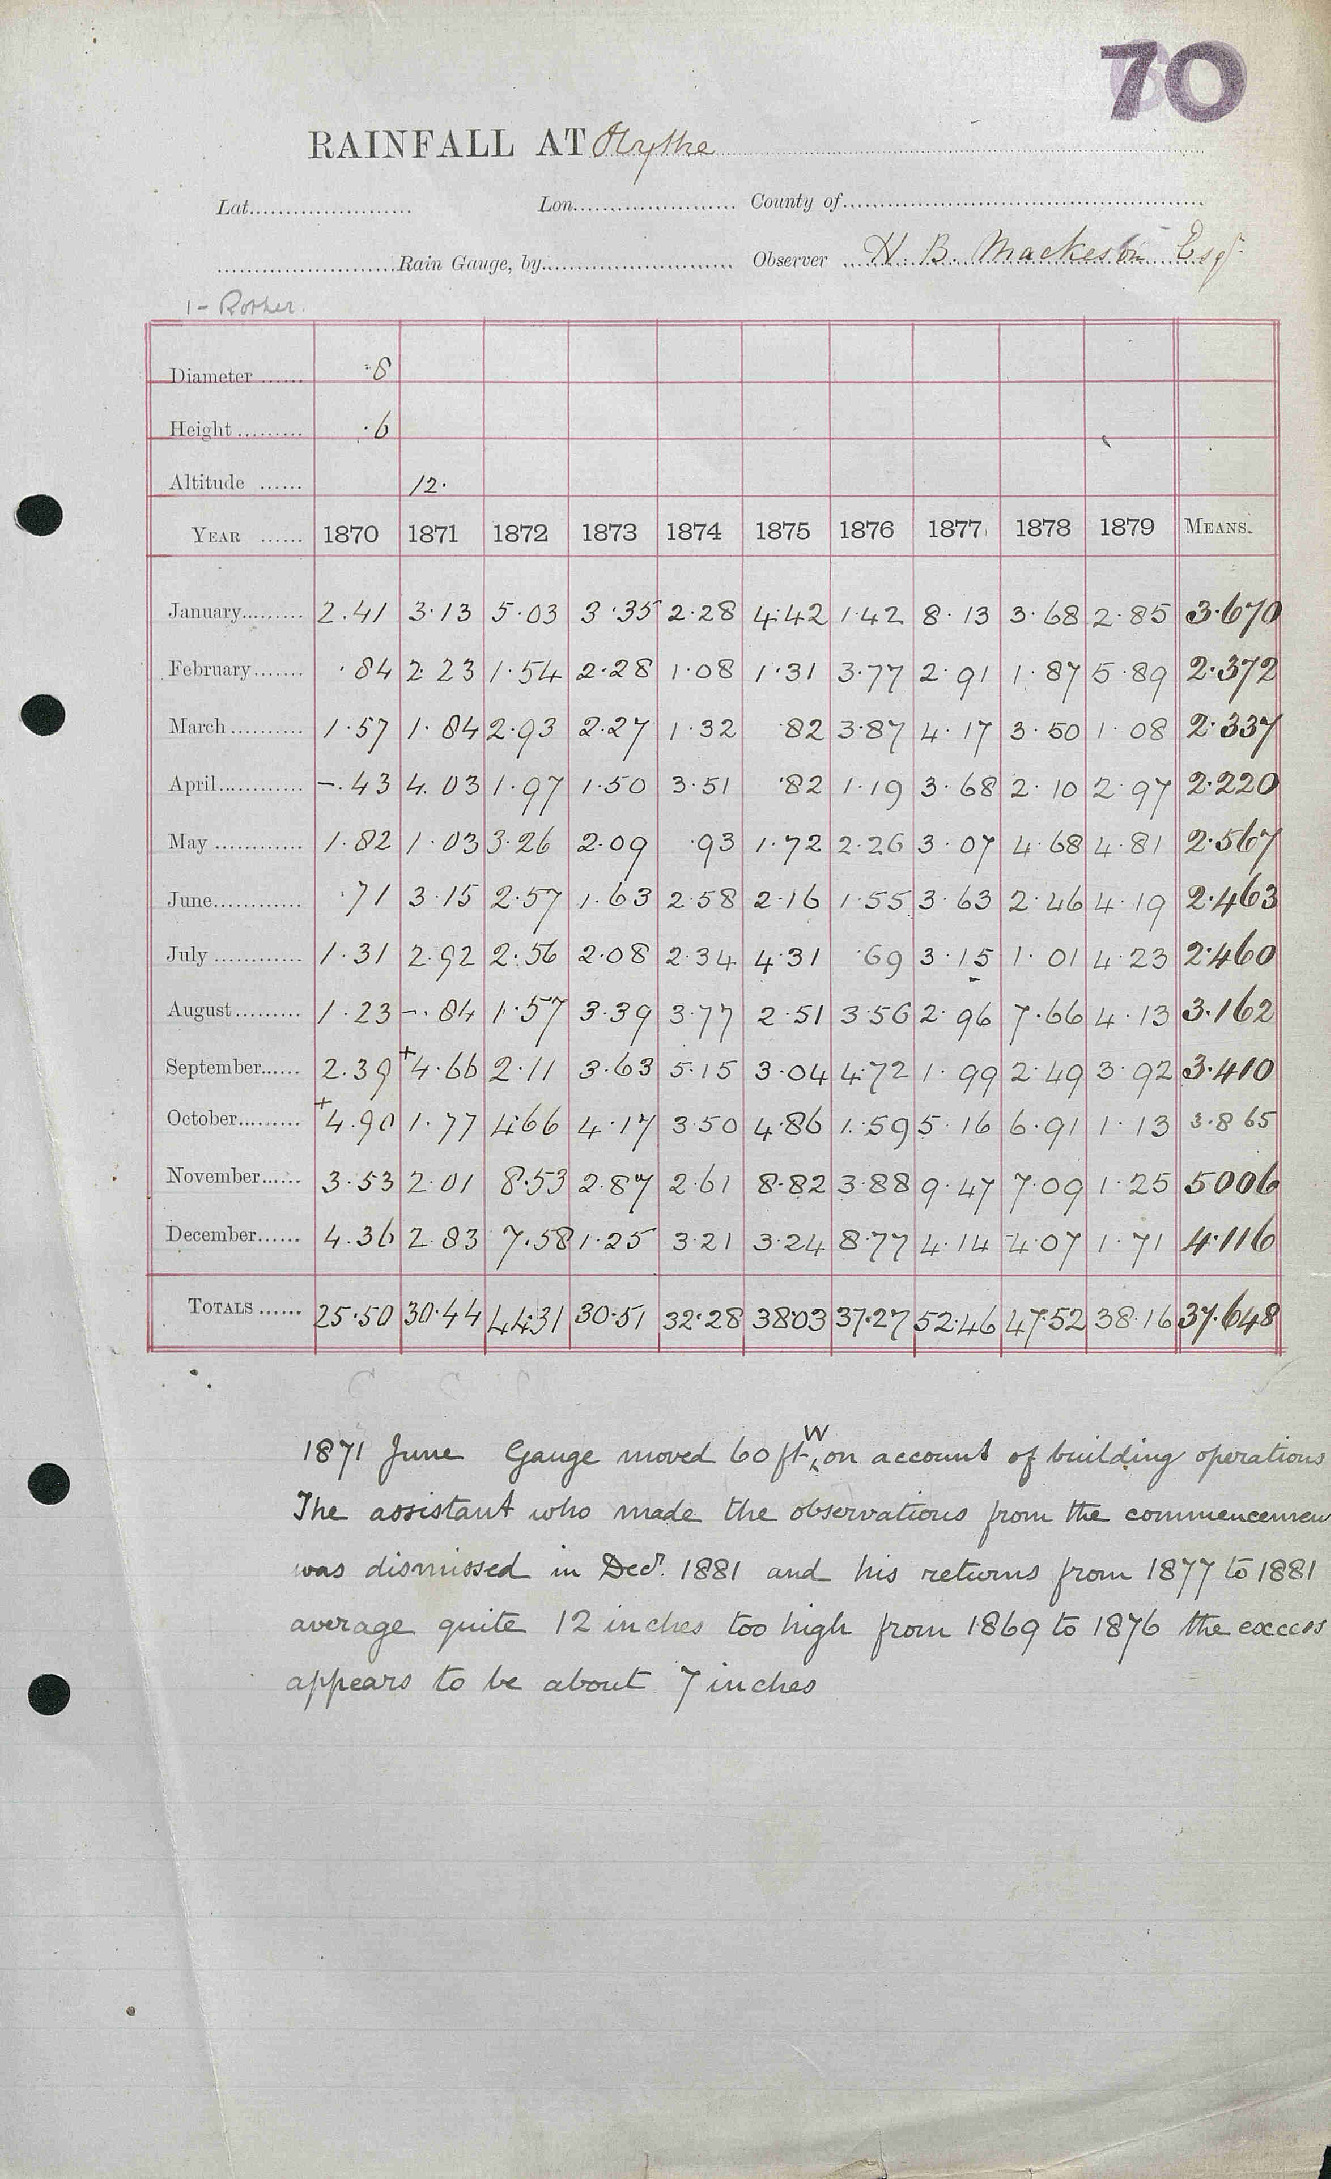 70
RAINFALL AT Hythe
Lat. Lon. County of
Rain Gauge, by Observer H. B. Mackeson Esqr
1 - Rother.
Diameter ·8
Height ·6
Altitude 12·
YEAR 1870 1871 1872 1873 1874 1875 1876 1877 1878 1879 MEANS.
January 2.41 3·13 5·03 3·35 2·28 4·42 1·42 8·13 3·68 2·85 3·670
February ·84 2·23 1·54 2·28 1·08 1·31 3·77 2·91 1·87 5·89 2·372
March 1·57 1·84 2·93 2·27 1·32 ·82 3·87 4·17 3·50 1·08 2·337
April –.43 4.03 1·97 1·50 3·51 ·82 1·19 3·68 2·10 2·97 2·220
May 1·82 1·03 3·26 2·09 ·93 1·72 2·26 3·07 4·68 4·81 2·567
June ·71 3·15 2·57 1·63 2·58 2·16 1·55 3·63 2·46 4·19 2·463
July 1·31 2·92 2·56 2·08 2·34 4·31 ·69 3·15 1·01 4·23 2·460
August 1·23 –·84 1·57 3·39 3·77 2·51 3·56 2·96 7·66 4·13 3·162
September 2.39 +4·66 2·11 3·63 5·15 3·04 4·72 1·99 2·49 3·92 3·410
October +4.90 1·77 4·66 4·17 3·50 4·86 1·59 5·16 6·91 1·13 3·865
November 3·53 2·01 8·53 2·87 2·61 8·82 3·88 9·47 7·09 1·25 5006
December 4·36 2·83 7·58 1·25 3·21 3·24 8·77 4·14 4·07 1·71 4·116
TOTALS 25·50 30·44 44·31 30·51 32·28 38·03 37·27 52·46 47·52 38·16 37·648
1871 June Gauge moved 60 ft W on account of building operations
The assistant who made the observations from the commencemen
was dismissed in Decr. 1881 and his returns from 1877 to 1881
average quite 12 inches too high from 1869 to 1876 the excess
appears to be about 7 inches